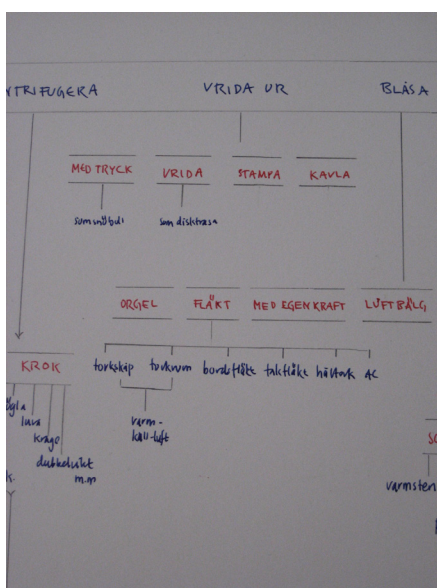 NTRIFUGERA VRIDA UR BLÅSA
MED TRYCK VRIDA STAMPA KAVLA
som disktrasa
ORGEL FLÄKT MED EGEN KRAFT LUFTBÄLG
KROK
torkskåp torkrum bordsfläkt takfläkt hårtork AC
ögla
luva
krage
dubbelvikt
m.m
varm-
kall-luft
k.
varmsten